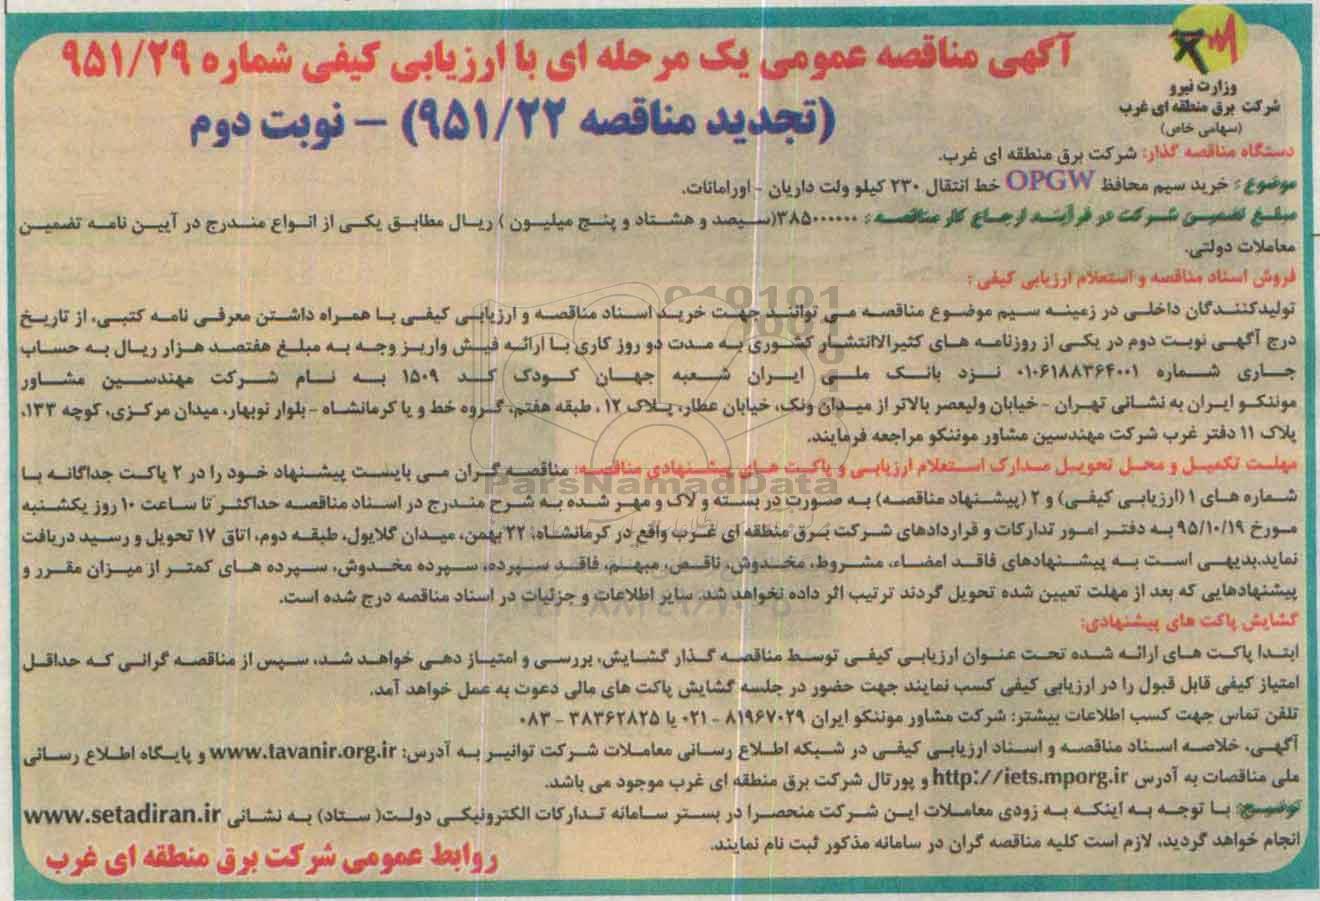 آگهی مناقصه عمومی یک مرحله ای با ارزیابی کیفی شماره ۹۵۱/۲۹
(تجدید مناقصه ۹۵۱/۲۲) – نوبت دوم
وزارت نیرو
شرکت برق منطقه ای غرب
(سهامی خاص)
دستگاه مناقصه گذار: شرکت برق منطقه ای غرب.
موضوع: خرید سیم محافظ OPGW خط انتقال ۲۳۰ کیلو ولت داریان - اورامانات.
مبلغ تضمین شرکت در فرآیند ارجاع کار مناقصه: ۳۸۵۰۰۰۰۰۰(سیصد و هشتاد و پنج میلیون ) ریال مطابق یکی از انواع مندرج در آیین نامه تضمین
معاملات دولتی.
فروش اسناد مناقصه و استعلام ارزیابی کیفی :
تولیدکنندگان داخلی در زمینه سیم موضوع مناقصه می توانند جهت خرید اسناد مناقصه و ارزیابی کیفی با همراه داشتن معرفی نامه کتبی، از تاریخ
درج آگهی نوبت دوم در یکی از روزنامه های کثیرالاانتشار کشوری به مدت دو روز کاری با ارائه فیش واریز وجه به مبلغ هفتصد هزار ریال به حساب
جاری شماره ۰۱۰۶۱۸۸۳۶۴۰۰۱ نزد بانک ملی ایران شعبه جهان کودک کد ۱۵۰۹ به نام شرکت مهندسین مشاور
موننکو ایران به نشانی تهران - خیابان ولیعصر بالاتر از میدان ونک، خیابان عطار، پلاک ۱۲ ، طبقه هفتم، گروه خط و یا کرمانشاه - بلوار نوبهار، میدان مرکزی، کوچه ۱۳۳،
پلاک ۱۱ دفتر غرب شرکت مهندسین مشاور موننکو مراجعه فرمایند.
مهلت تکمیل و محل تحویل مدارک استعلام ارزیابی و پاکت های پیشنهادی مناقصه: مناقصه گران می بایست پیشنهاد خود را در ۲ پاکت جداگانه با
شماره های ۱ (ارزیابی کیفی) و ۲ (پیشنهاد مناقصه) به صورت در بسته و لاک و مهر شده به شرح مندرج در اسناد مناقصه حداکثر تا ساعت ۱۰ روز یکشنبه
مورخ ۹۵/۱۰/۱۹ به دفتر امور تدارکات و قراردادهای شرکت برق منطقه ای غرب واقع در کرمانشاه، ۲۲ بهمن، میدان گلایول، طبقه دوم، اتاق ۱۷ تحویل و رسید دریافت
نماید.بدیهی است به پیشنهادهای فاقد امضاء، مشروط، مخدوش، ناقص، مبهم، فاقد سپرده، سپرده مخدوش، سپرده های کمتر از میزان مقرر و
پیشنهادهایی که بعد از مهلت تعیین شده تحویل گردند ترتیب اثر داده نخواهد شد. سایر اطلاعات و جزئیات در اسناد مناقصه درج شده است.
گشایش پاکت های پیشنهادی:
ابتدا پاکت های ارائه شده تحت عنوان ارزیابی کیفی توسط مناقصه گذار گشایش، بررسی و امتیاز دهی خواهد شد، سپس از مناقصه گرانی که حداقل
امتیاز کیفی قابل قبول را در ارزیابی کیفی کسب نمایند جهت حضور در جلسه گشایش پاکت های مالی دعوت به عمل خواهد آمد.
تلفن تماس جهت کسب اطلاعات بیشتر: شرکت مشاور موننکو ایران ۸۱۹۶۷۰۲۹ - ۰۲۱ یا ۳۸۳۶۲۸۲۵ - ۰۸۳
آگهی، خلاصه اسناد مناقصه و اسناد ارزیابی کیفی در شبکه اطلاع رسانی معاملات شرکت توانیر به آدرس: www.tavanir.org.ir و پایگاه اطلاع رسانی
ملی مناقصات به آدرس http://iets.mporg.ir و پورتال شرکت برق منطقه ای غرب موجود می باشد.
توضیح: با توجه به اینکه به زودی معاملات این شرکت منحصرا در بستر سامانه تدارکات الکترونیکی دولت( ستاد) به نشانی www.setadiran.ir
انجام خواهد گردید، لازم است کلیه مناقصه گران در سامانه مذکور ثبت نام نمایند.
روابط عمومی شرکت برق منطقه ای غرب
ParsNamadData